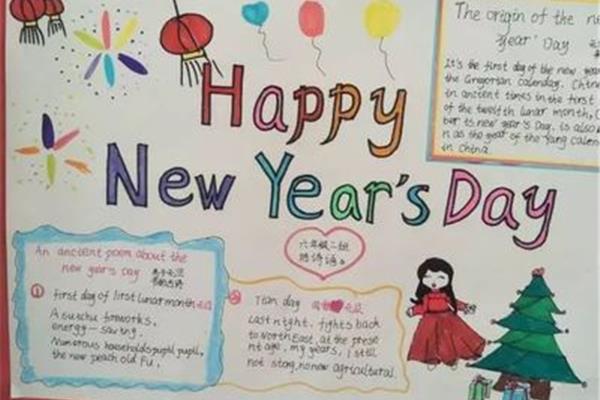 Happy
New Year's Day
The origin of the ne
Year' Day
It's the first day of the new year
the Gregorian calenday. Chine
in ancient times in the first
of the twelfth lunar month, C
ber ts new year's Day. is also k
n as the year of the Yang calen
in China.
六年级二班
An ancient poem about the
new year's day
① first day of lirst lunar month
A sutchu fireworks,
energy—saw tng.
Numerous households pupil, pupil,
the new peach old Fu,
② Tian day
Last night, fights back
to North East, at the prese
nt age, my years, I still
not stay, no now agricultural.